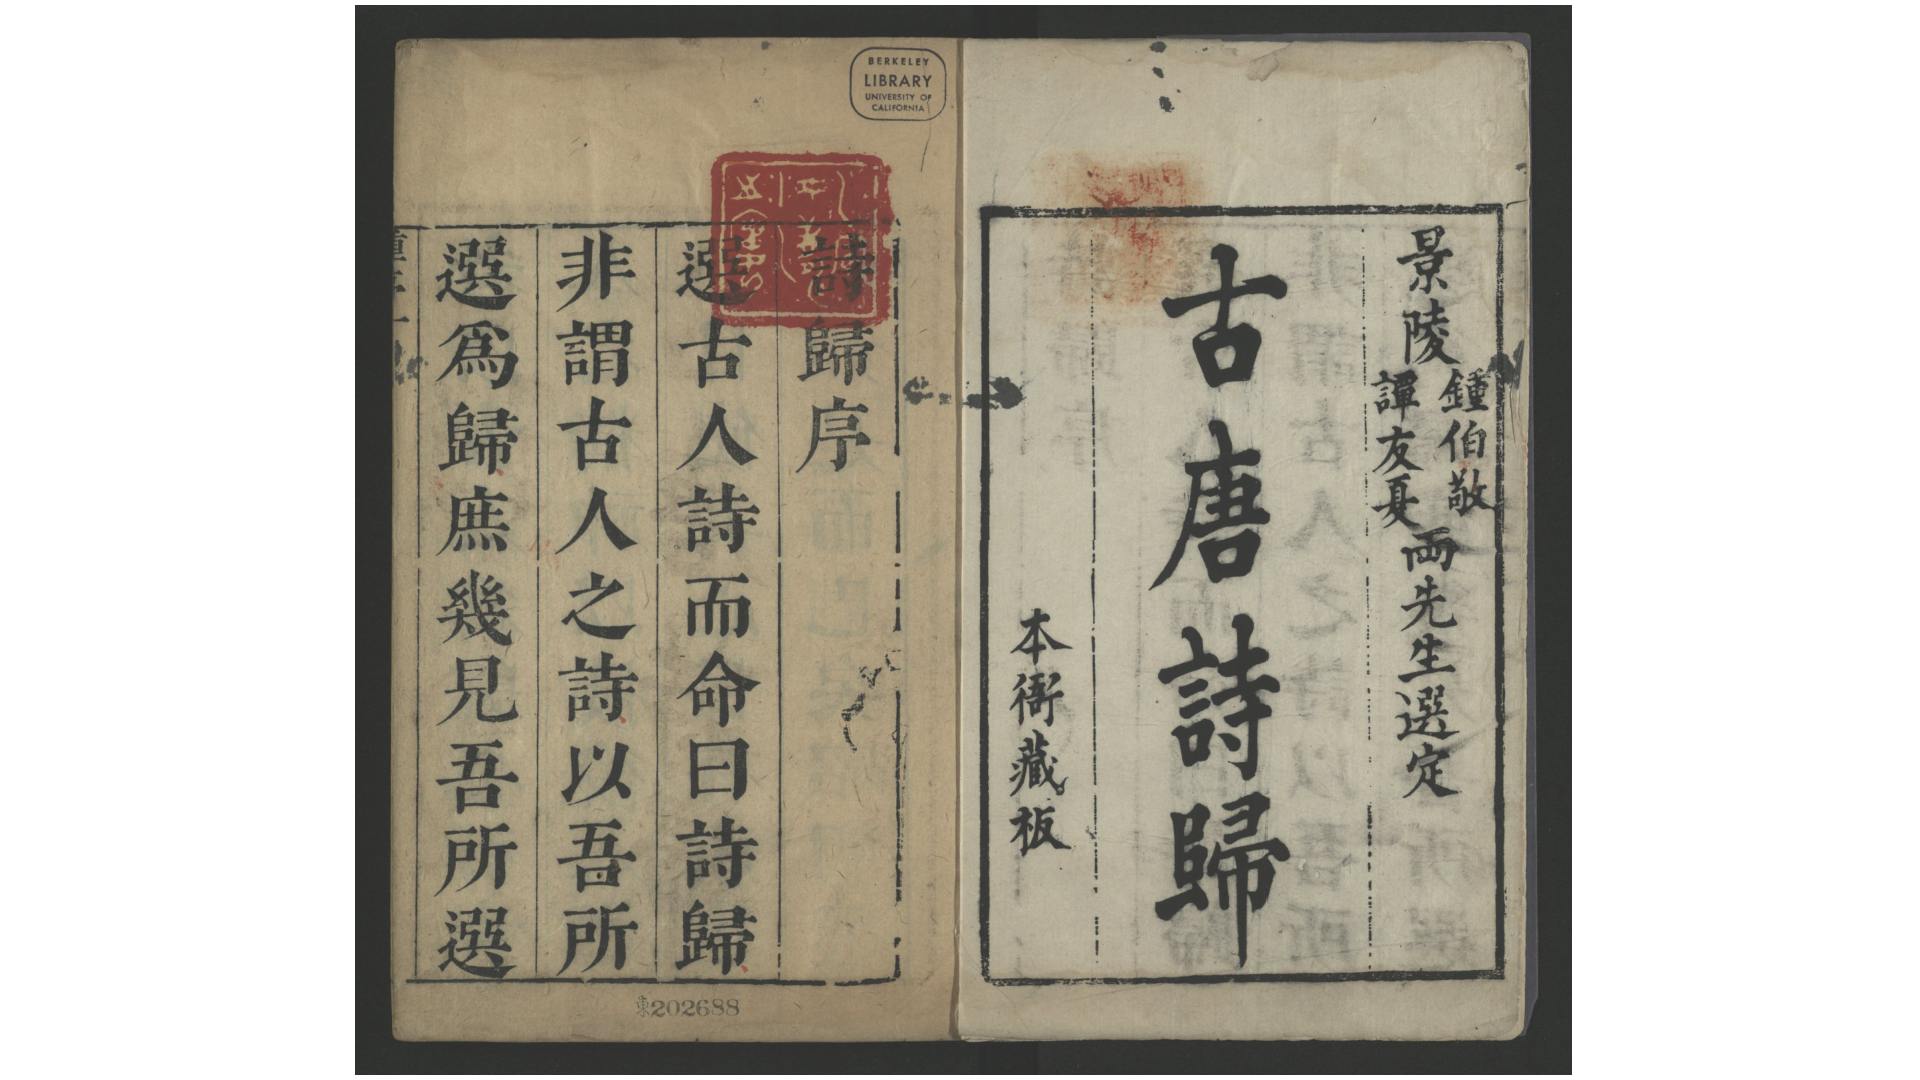 景陵
鍾伯敬
譚友夏
兩先生選定
古唐詩歸
本衙藏板
BERKELEY
LIBRARY
UNIVERSITY OF
CALIFORNIA
詩歸序
選古人詩而命曰詩歸
非謂古人之詩以吾所
選爲歸庶幾見吾所選
東202688